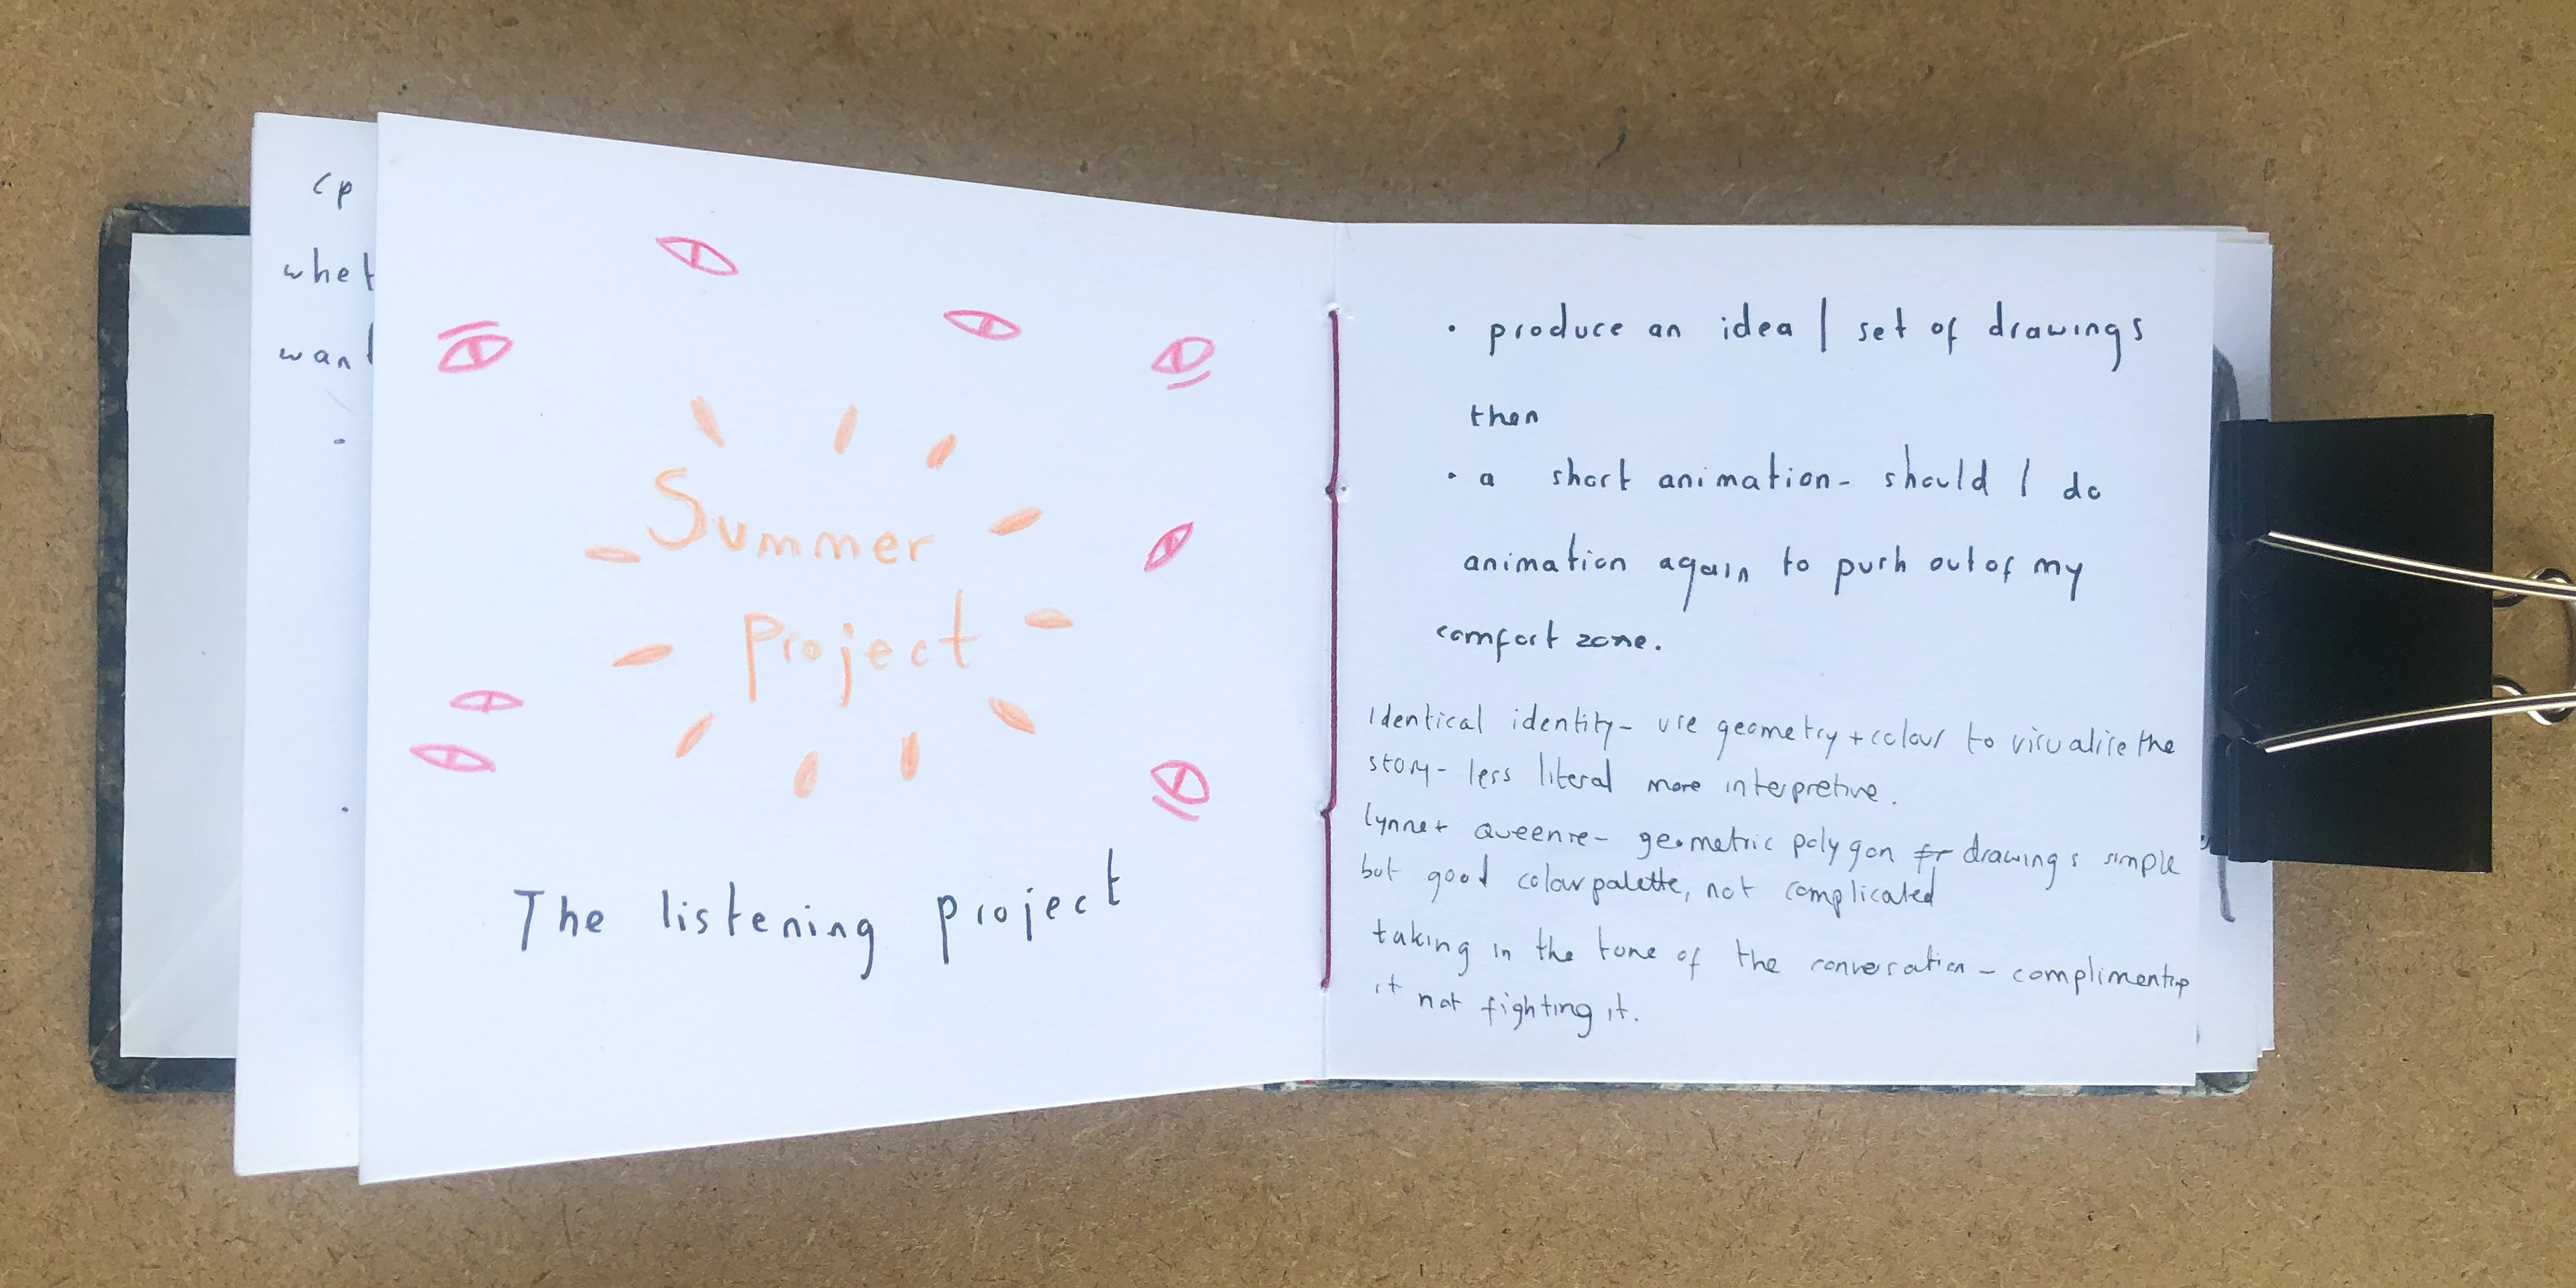 cp
whet
want
Summer
Project
The listening project
• produce an idea / set of drawings
then
• a short animation - should I do
animation again to push out of my
comfort zone.
Identical identity - use geometry + colour to visualise the
story - less literal more interpretive.
Lynne + Queenie - geometric polygon drawings simple
but good colour palette, not complicated
taking in the tone of the conversation - complimenting
it not fighting it.